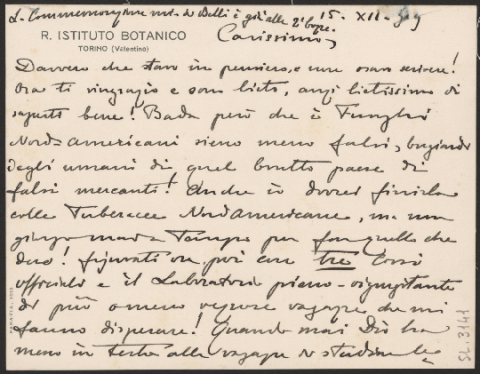 La Commemorazione mia di Belli è già alle 2e boze.
15-XII-919
R. ISTITUTO BOTANICO
TORINO (Valentino)
Carissimo,
Davvero che stavo in pensiero, e non osavo scrivere!
Ora ti ringrazio e sono lieto, anzi lietissimo di
saperti bene! Bada però che i Funghi
Nord-americani sieno meno falsi, bugiardi
degli umani di quel brutto paese di
falsi mercanti! Anche io dovrei finirla
colle Tuberacee NordAmericane, ma non
giungo mai a Tempo per far quello che
devo! figurati ora poi con tre Corsi
ufficiali e il Laboratorio pieno-rigurgitante
di più o meno vezzose ragazze che mi
fanno disperare! Quando mai Dio ha
meno in testa alle ragazze di studiar le
SL.3141